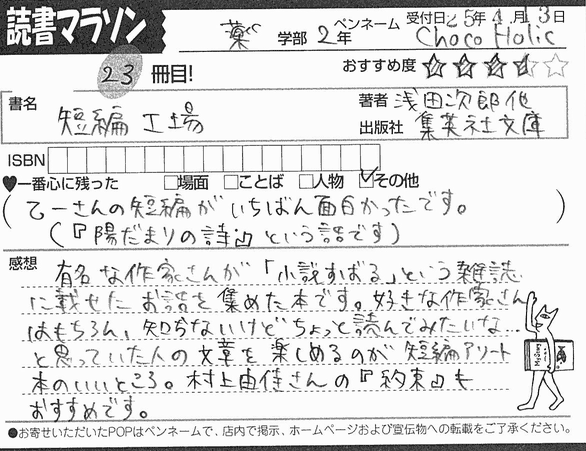 読書マラソン
薬 学部 2年
ペンネーム Choco Holic
受付日 25年 4月 13日
23 冊目!
おすすめ度
書名 短編工場
著者 浅田次郎他
出版社 集英社文庫
ISBN
♥一番心に残った □場面 □ことば □人物 ☑その他
(乙一さんの短編がいちばん面白かったです。
(『陽だまりの詩』という話です)
感想
有名な作家さんが「小説すばる」という雑誌
に載せたお話を集めた本です。好きな作家さん
はもちろん、知らないけどちょっと読んでみたいな…
と思っていた人の文章を楽しめるのが短編アソート
本のいいところ。村上由佳さんの『約束』も
おすすめです。
●お寄せいただいたPOPはペンネームで、店内で掲示、ホームページおよび宣伝物への転載をご了承ください。